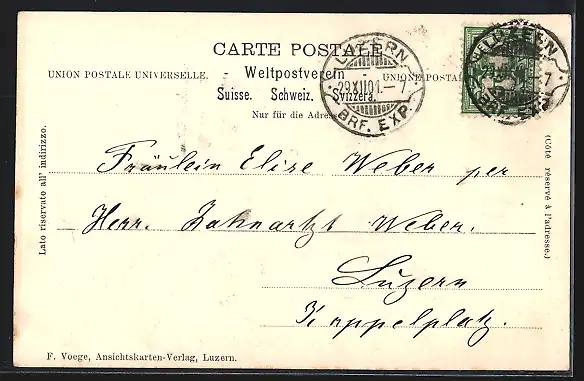 CARTE POSTALE.
UNION POSTALE UNIVERSELLE. - Weltpostverein - UNIONE POSTALE
Suisse. Schweiz. Svizzera.
Nur für die Adresse
LUZERN
29.XII.01.-7
BRF. EXP.
LUZERN
29.XII.01.-7
BRF. EXP.
Lato riservato all' indirizzo.
(Côté réservé à l'adresse.)
Fräulein Elise Weber per
Herr. Zahnarzt Weber.
Luzern
Kappelplatz.
F. Voege, Ansichtskarten-Verlag, Luzern.